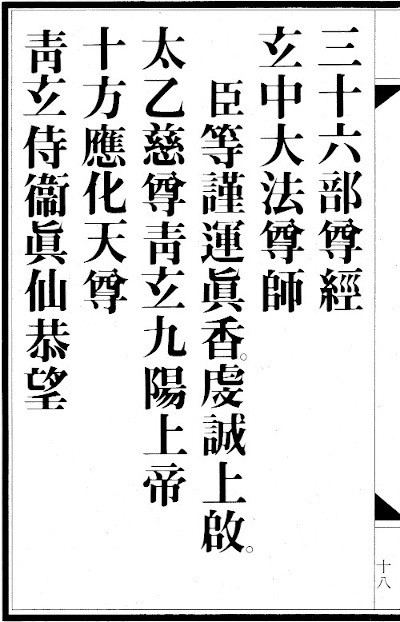 三十六部尊經
玄中大法尊師
臣等謹運眞香。虔誠上啟。
太乙慈尊靑玄九陽上帝
十方應化天尊
靑玄侍衞眞仙恭望
十八